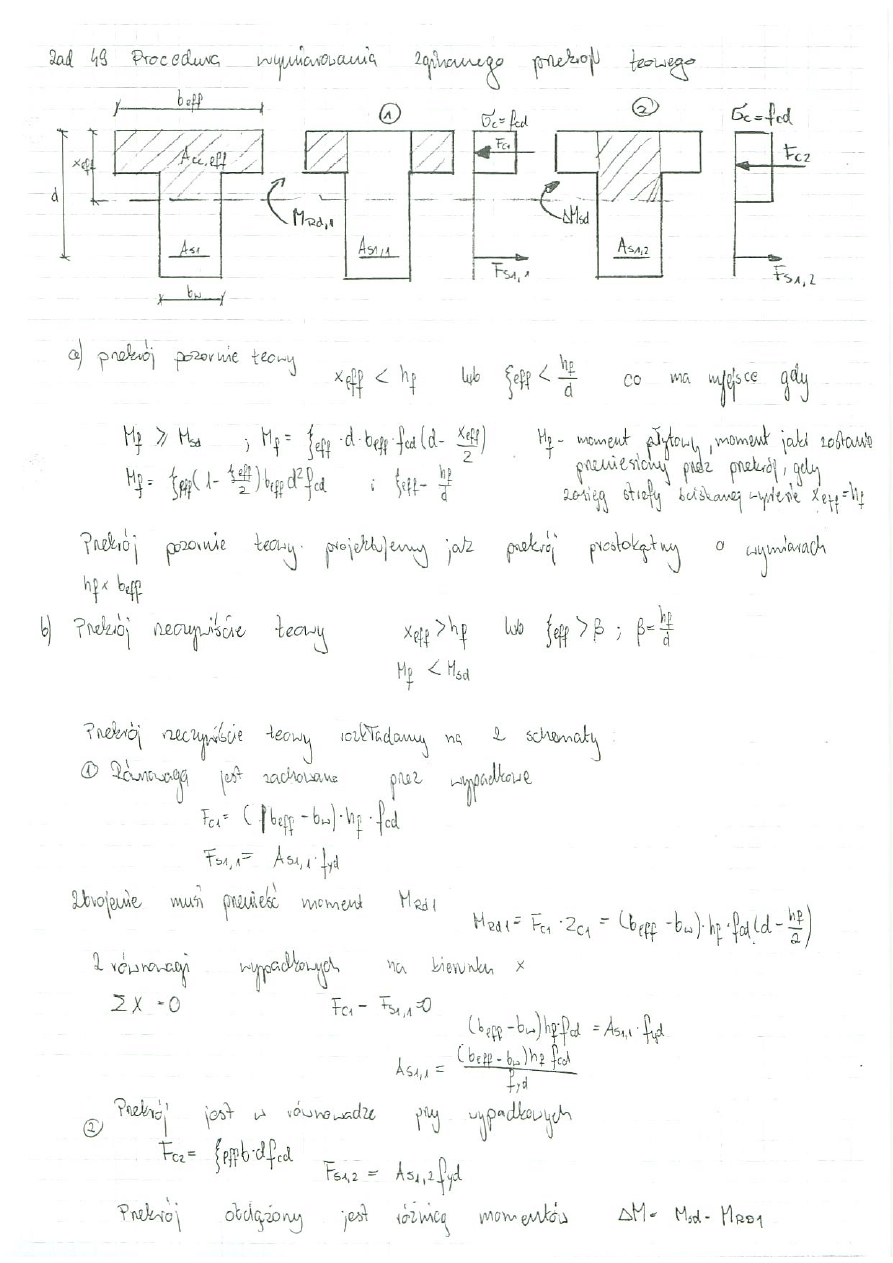 Zad 49 Procedura wymiarowania zginanego przekroju teowego
beff
1
2
σc=fcd
σc=fcd
Fc1
Fc2
xeff
Acc,eff
d
MRd,1
ΔMsd
As1
As1,1
As1,2
Fs1,1
Fs1,2
bw
a) przekrój pozornie teowy
xeff < hf lub ξeff < hf/d co ma miejsce gdy
Mf ≥ Msd ; Mf = ξeff · d · beff · fcd (d - xeff/2)
Mf - moment płytowy, moment jaki zostanie
Mf = ξeff (1 - ξeff/2) beff d² fcd ; ξeff - hf/d
przeniesiony przez przekrój, gdy
zasięg strefy ściskanej wyniesie xeff = hf
Przekrój pozornie teowy projektujemy jak przekrój prostokątny o wymiarach
hf x beff
b) Przekrój rzeczywiście teowy xeff > hf lub ξeff > β ; β = hf/d
Mf < Msd
Przekrój rzeczywiście teowy rozkładamy na 2 schematy:
1 Równowaga jest zachowana przez wypadkowe
Fc1 = (beff - bw) · hf · fcd
Fs1,1 = As1,1 · fyd
Zbrojenie musi przenieść moment MRd1
MRd1 = Fc1 · zc1 = (beff - bw) · hf · fcd (d - hf/2)
Z równowagi wypadkowych na kierunku x
ΣX = 0 Fc1 - Fs1,1 = 0
(beff - bw) hf · fcd = As1,1 · fyd
As1,1 = (beff - bw) hf fcd / fyd
2 Przekrój jest w równowadze przy wypadkowych
Fc2 = ξeff b · d fcd
Fs1,2 = As1,2 fyd
Przekrój obciążony jest różnicą momentów ΔM = Msd - MRD1